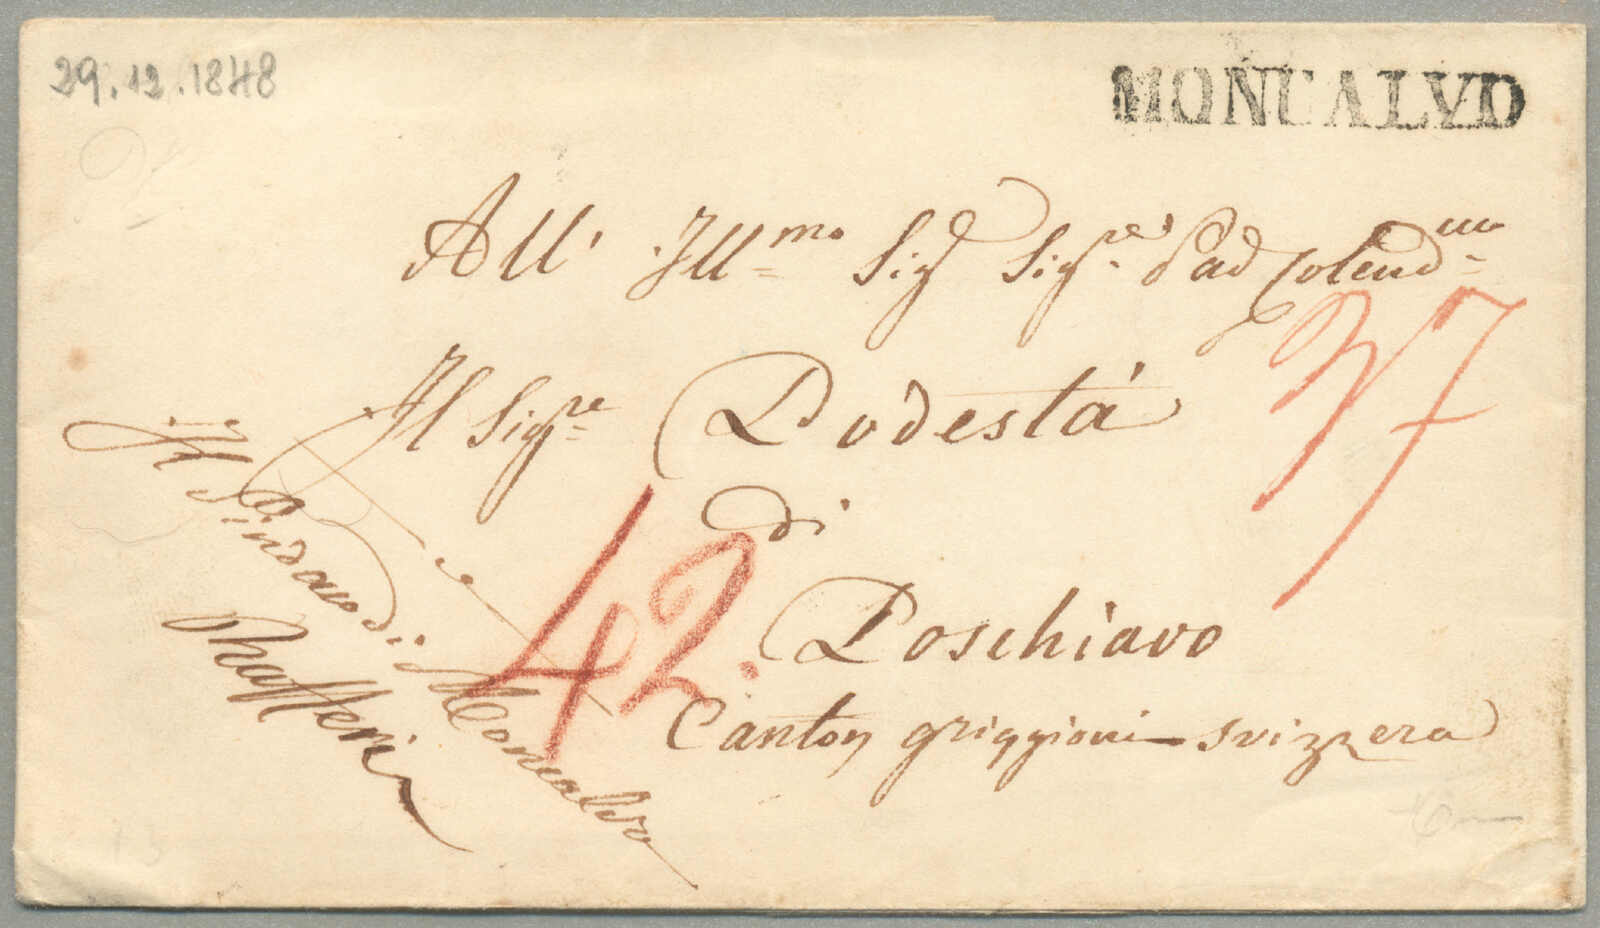 29.12.1848
MONCALVO
All' Ill.mo Sig. Sig.re Pad Colend.mo
Il Sig.re Podestá
di
Poschiavo
Canton griggioni svizzera
37
42.
Il Sindaco di Moncalvo